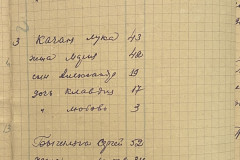 3 Качан Лука 43
жена Мария 42
сын Александр 19
дочь Клавдия 17
" Любовь 3
Сергей 52